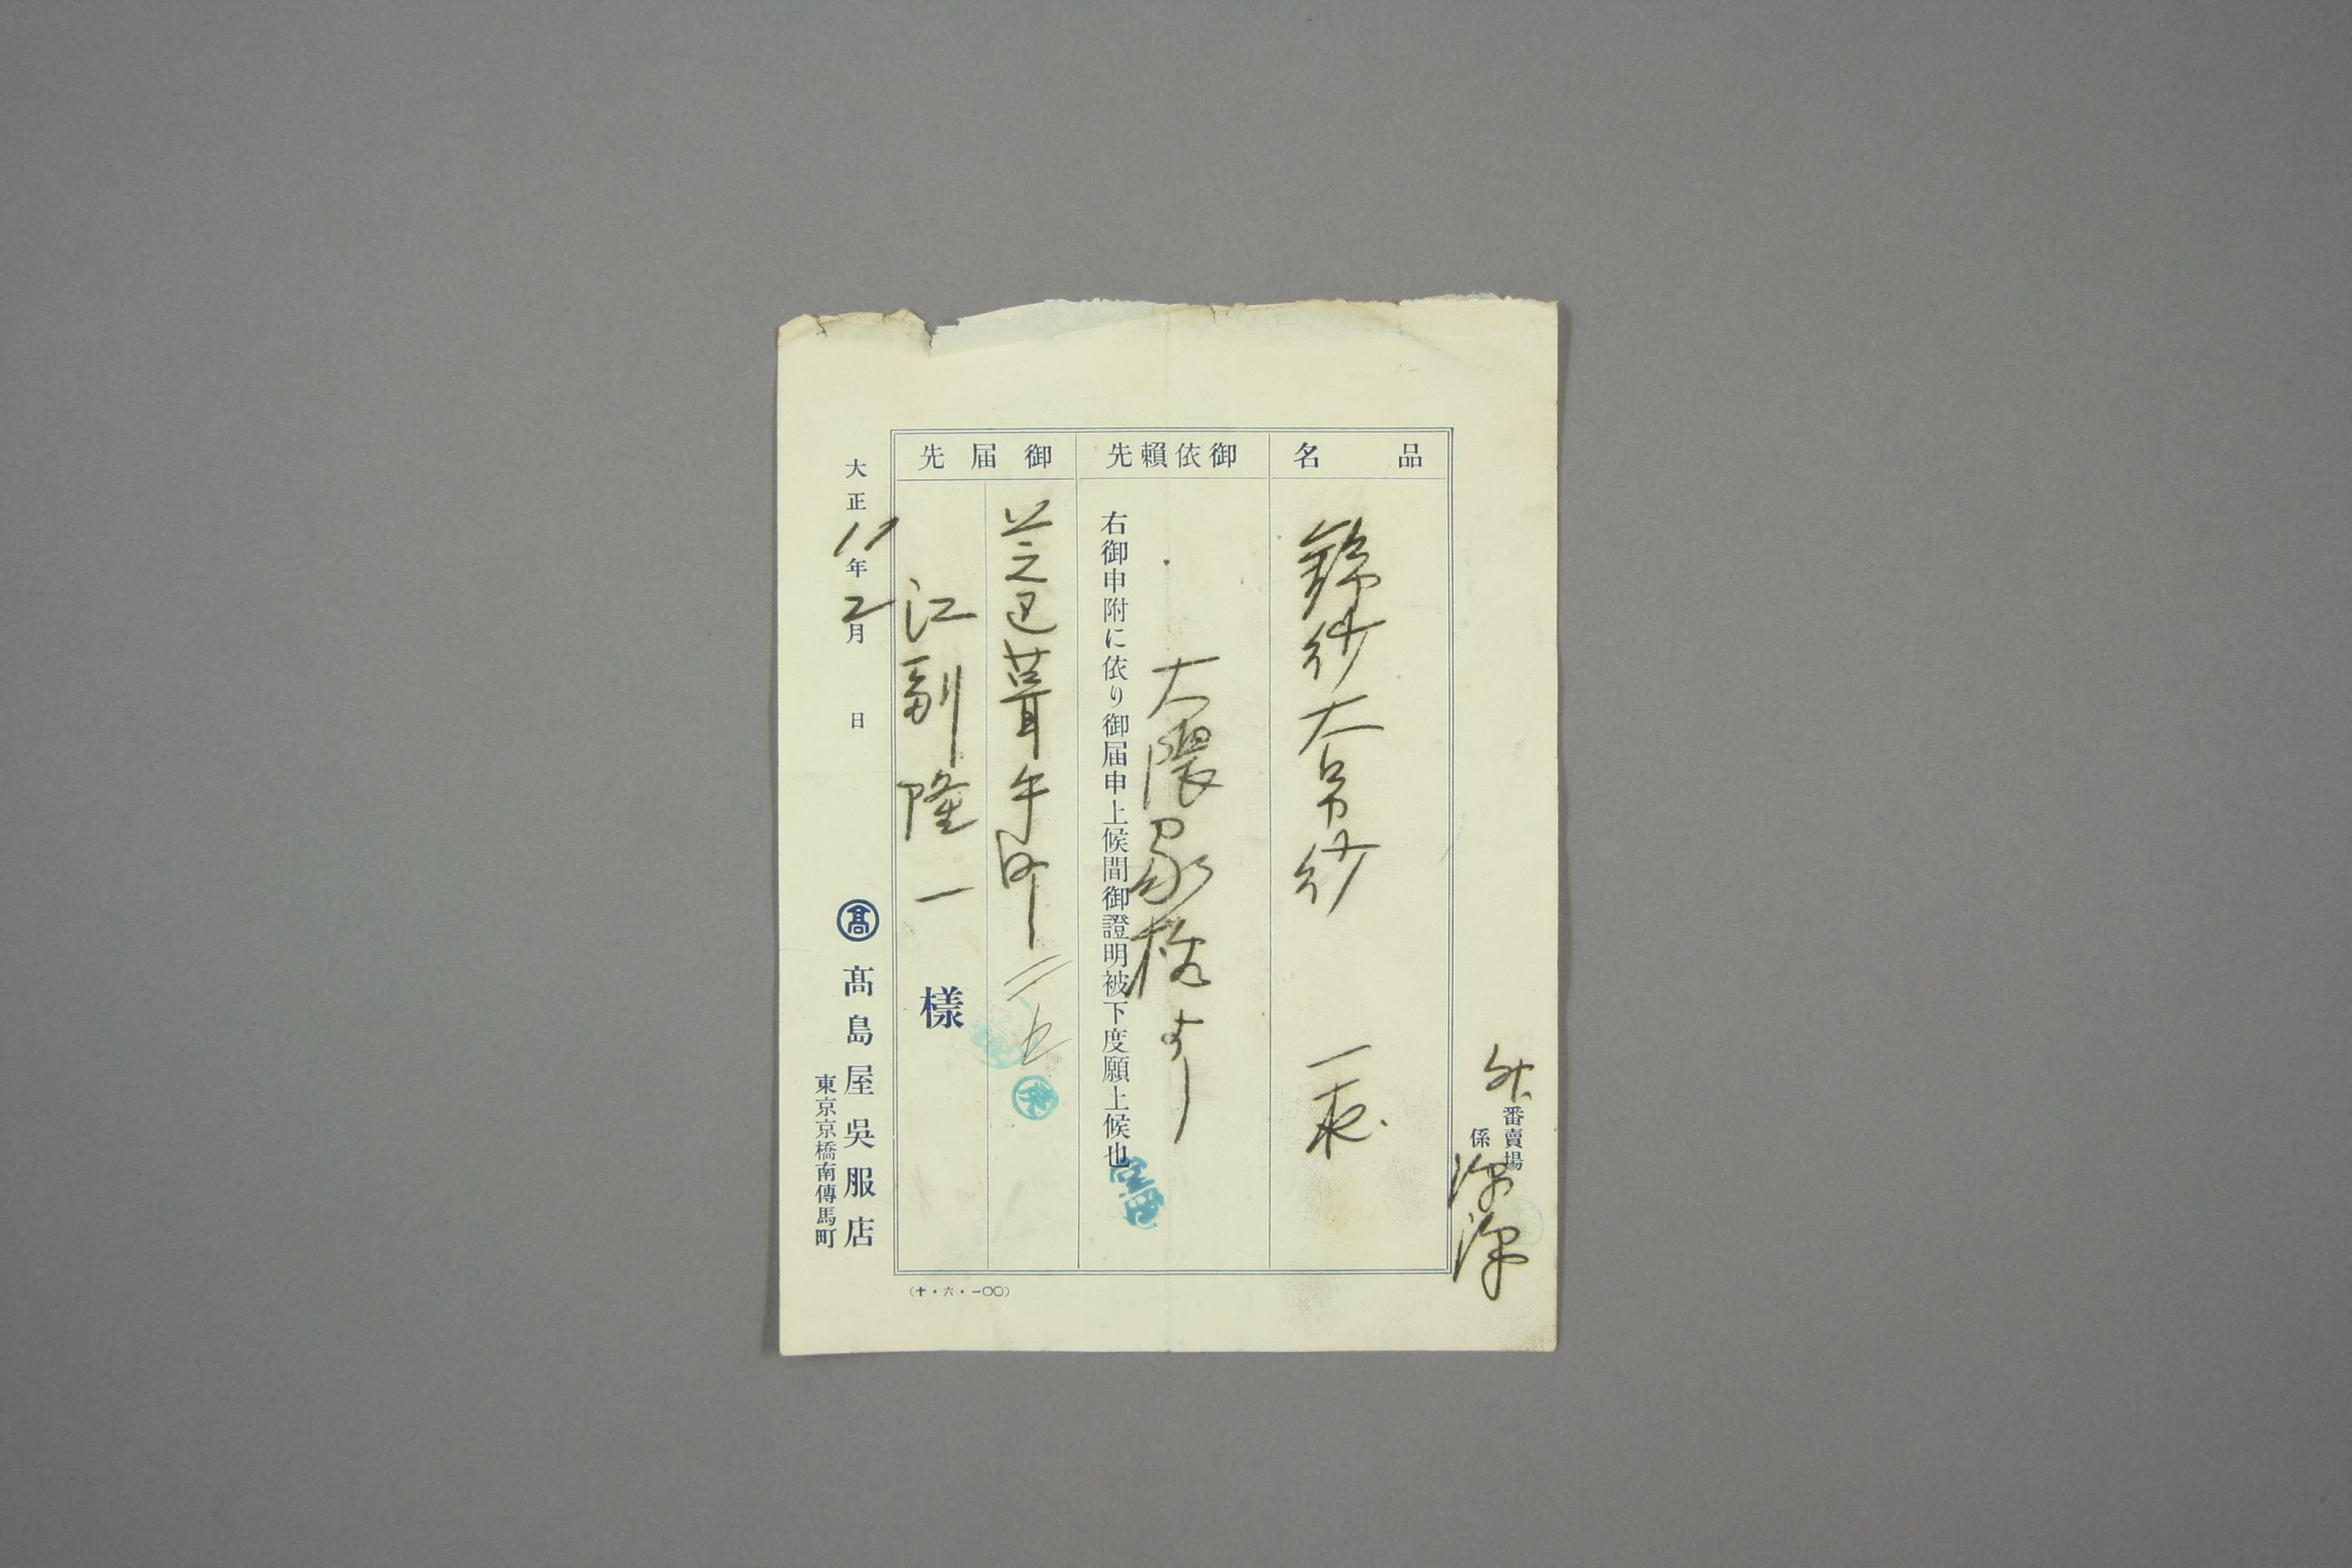 外番賣場
係
品名
錦紗大帛紗 一枚
御依賴先
大隈家様より
右御申附に依り御届申上候間御證明被下度願上候也
御届先
芝區葺手町二五
江副隆一様
大正11年2月 日
髙 髙島屋呉服店
東京京橋南傳馬町
(十・六・一〇〇)